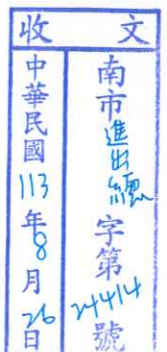 收文
中華民國113年8月26日
南市進出總字第24414號